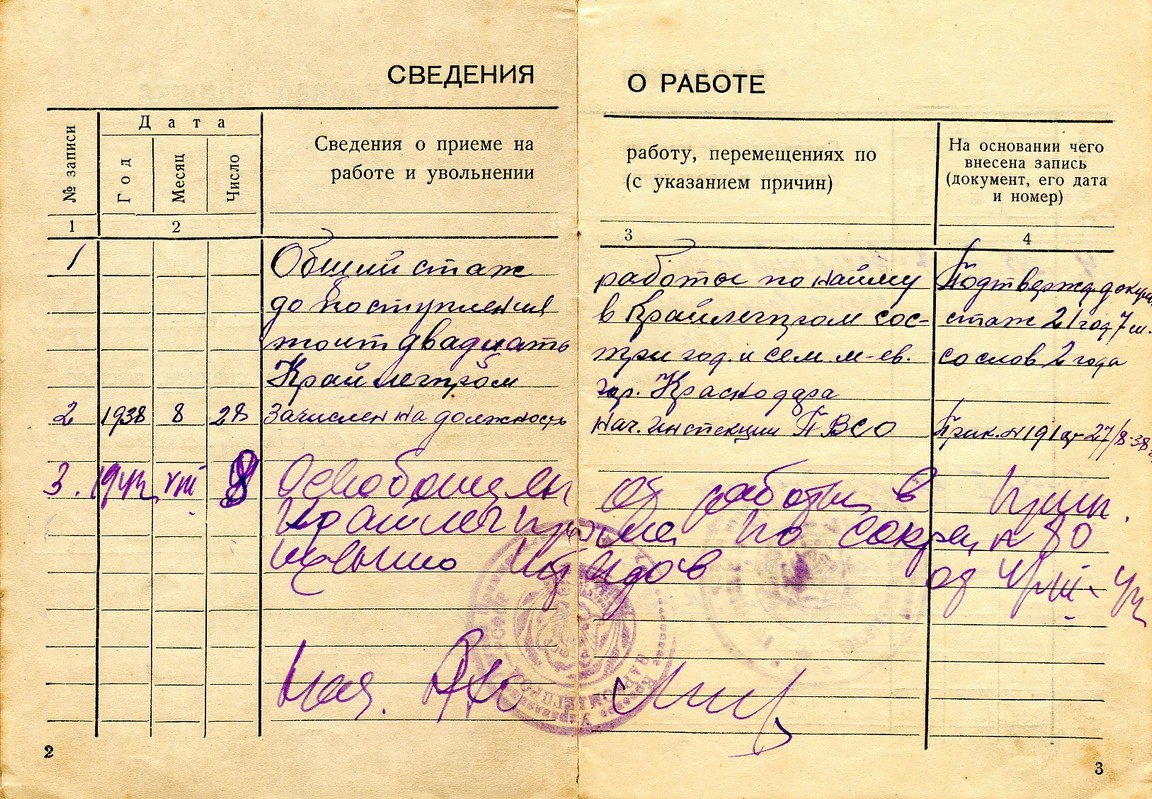 СВЕДЕНИЯ О РАБОТЕ
№ записи
Дата
Год
Месяц
Число
Сведения о приеме на
работе и увольнении
работу, перемещениях по
(с указанием причин)
На основании чего
внесена запись
(документ, его дата
и номер)
1 2 3 4
1 Общий стаж работы по найму Подтвержд. докум.
до поступления в Крайлегпром сос- стаж 21 год 7 м.
тоит двадцать три год. и сем. м-ев. со слов 2 года
Крайлегпром гор. Краснодара
2 1938 8 28 Зачислен на должность нач. инспекции ПВСО Прик. № 191 от 27/8-38 г.
3. 1942 VIII 8 Освобожден от работы в Прик.
Крайлегпроме по сокращ № 80
штатов от VIII-42
Нач.
2
3